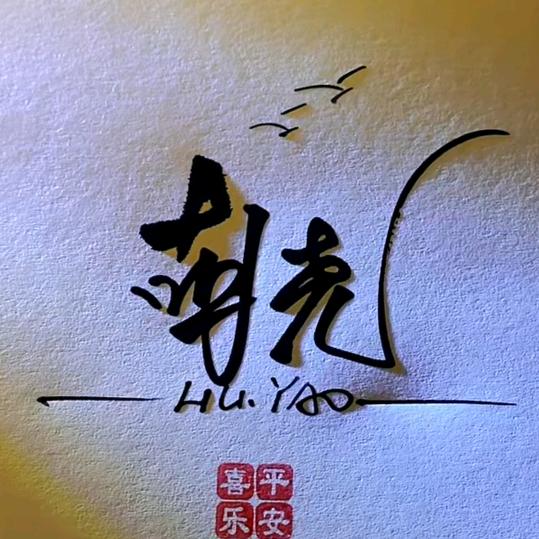 胡尧
HU.YAO
喜平
乐安